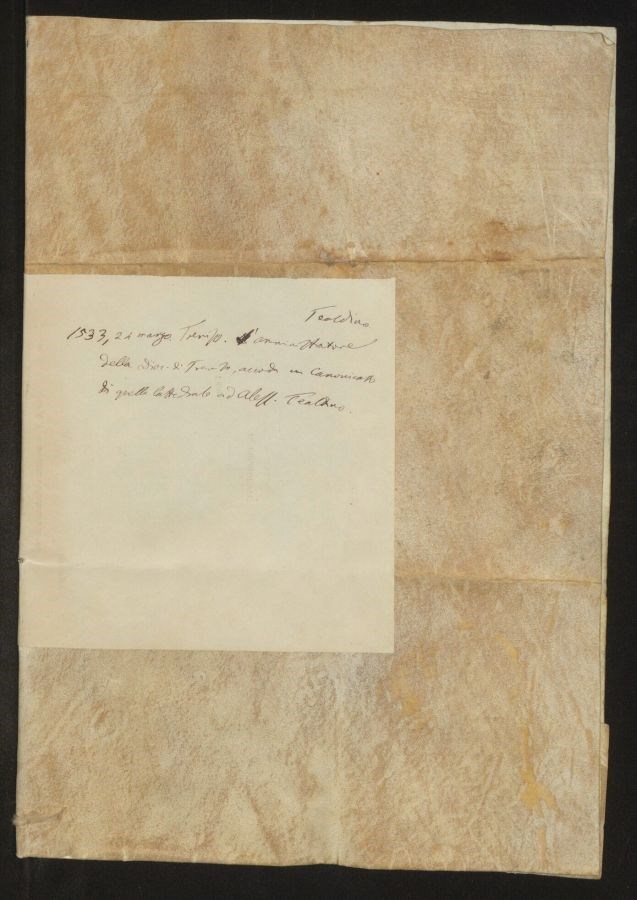 Tealdino
1533, 24 marzo Treviso. L'amministratore
della dioc. di Treviso, accorda un Canonicato
di quella Cattedrale ad Aless. Tealdino.